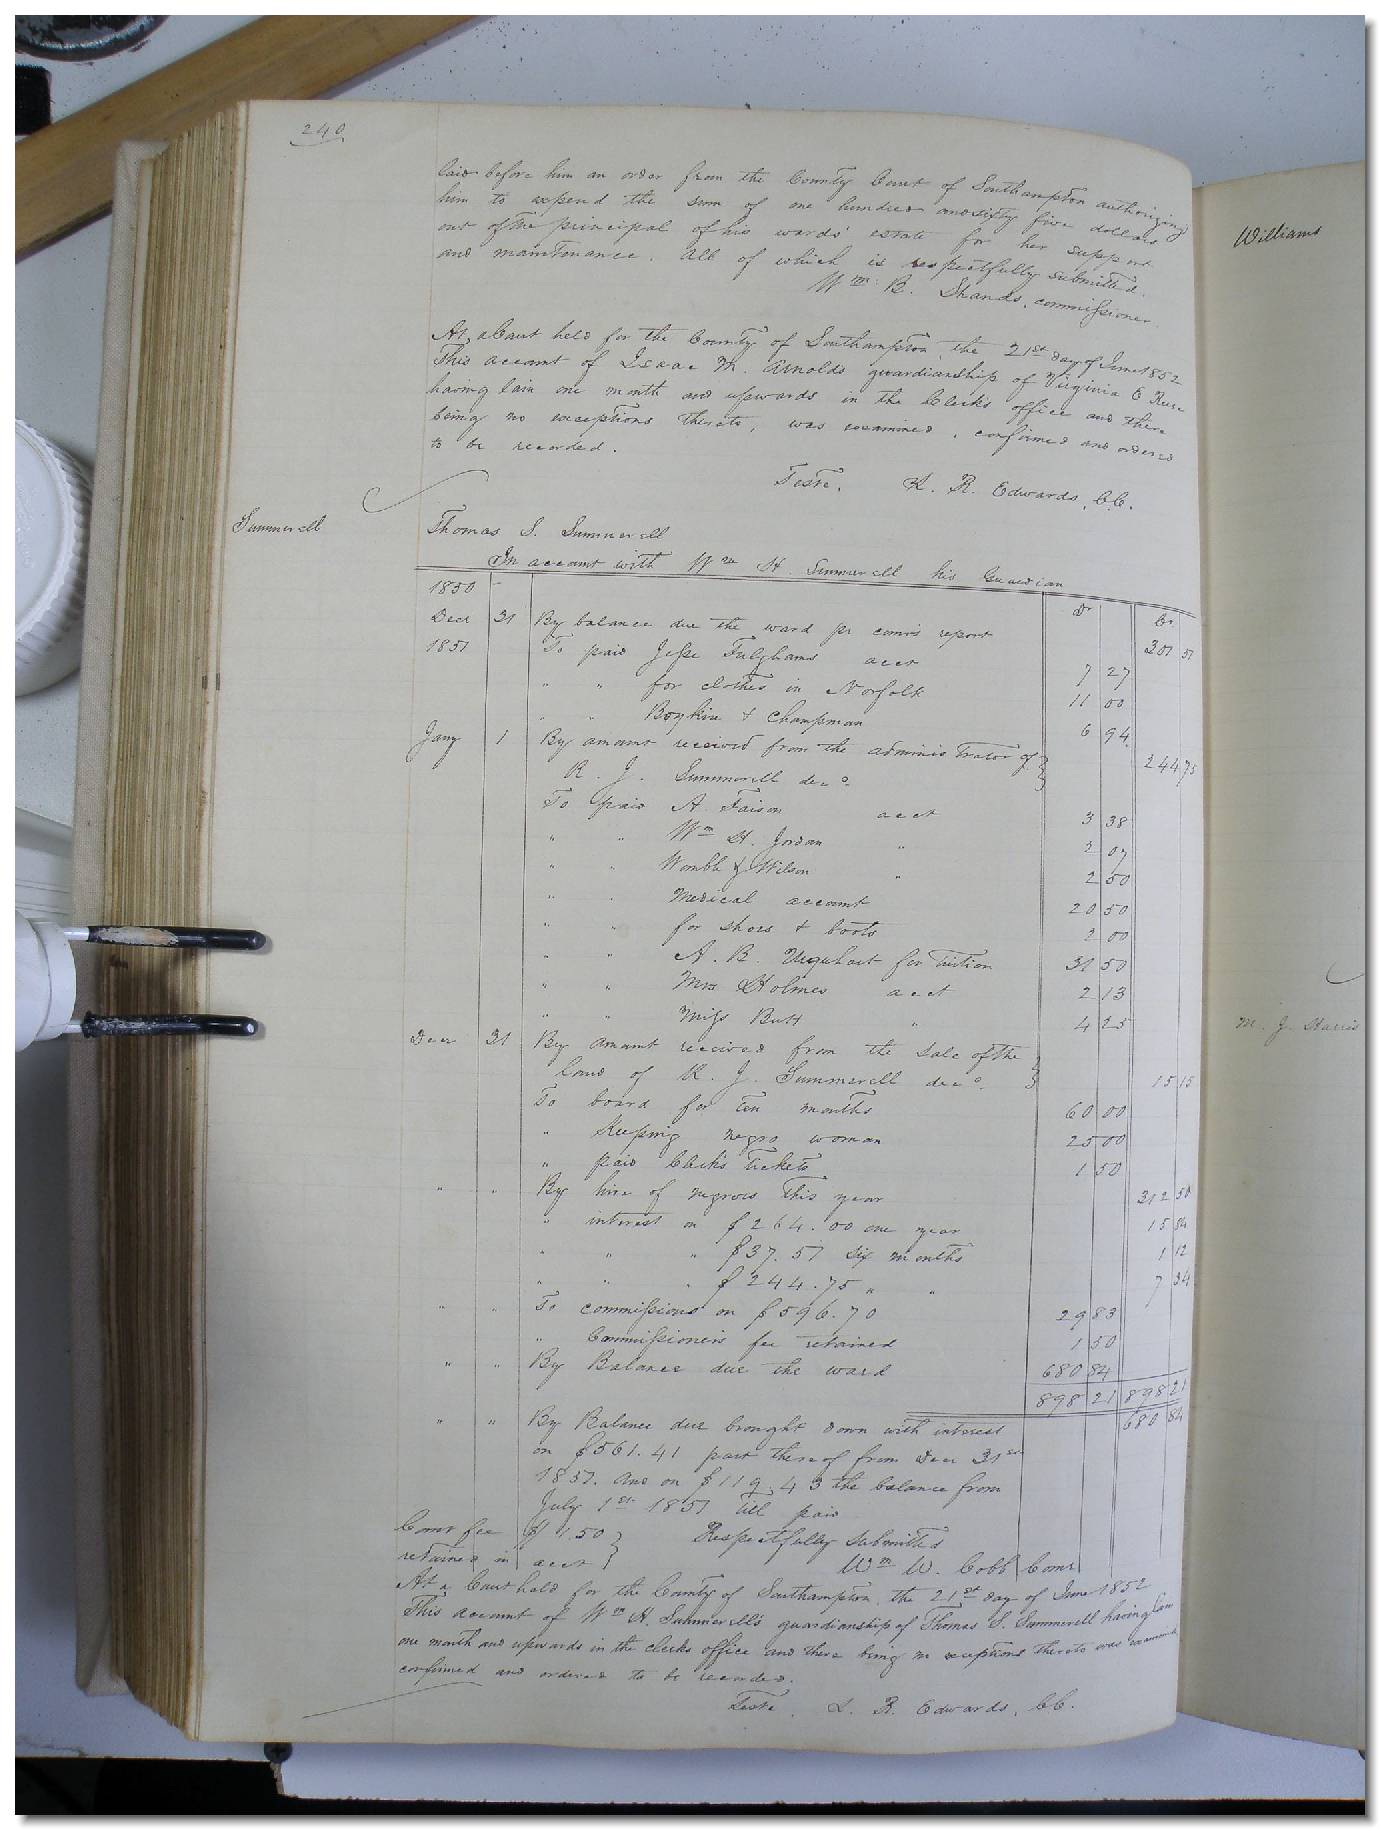 240
laid before him an order from the County Court of Southampton authorizing
him to expend the sum of one hundred and sixty five dollars
out of the principal of his wards' estate for her support
and maintenance. All of which is respectfully submitted.
Wm. B. Shands, commissioner.
At a Court held for the County of Southampton the 21st day of June 1852
This account of Isaac M. Arnolds guardianship of Virginia E
having lain one month and upwards in the Clerks office and there
being no exceptions thereto, was examined, confirmed and ordered
to be recorded.
Teste, L. R. Edwards, C.C.
Summerell
Thomas S. Summerell
In account with Wm H. Summerell his Guardian
1850 Dr Cr
Decr 31 By balance due the ward pr comrs report 301 57
1851 To paid Jesse Fulghams acct 7 27
" " for clothes in Norfolk 11 00
" " Boykin & Chapman 6 94
Jany 1 By amount received from the administrator of } 244 75
R. J. Summerell decd.
To paid A. Faison acct 3 38
" " Wm H. Jordan " 2 07
" " Womble & Wilson " 2 50
" " Medical account 20 50
" " for shoes & boots 2 00
" " A. B. Urquhart for Tuition 31 50
" " Mrs Holmes acct 2 13
" " Miss Butt " 4 25
Decr 31 By amount received from the sale of the
land of R. J. Summerell decd. } 15 15
To board for ten months 60 00
" Keeping negro woman 25 00
" paid Clerks Tickets 1 50
" " By hire of negroes this year 312 50
" interest on $264.00 one year 15 84
" " " $37.57 six months 1 12
" " " $244.75 " " 7 34
" " To commissions on $596.70 29 83
" Commissioners fee retained 1 50
" " By Balance due the ward 680 84
898 21 898 21
" " By Balance due brought down with interest 680 84
on $561.41 part thereof from Decr 31st
1851. and on $119.43 the balance from
July 1st 1851 till paid
Comr fee $1.50 } Respectfully submitted
retained in acct } Wm W. Cobb Comr
At a Court held for the County of Southampton, the 21st day of June 1852
This account of Wm H. Summerell's guardianship of Thomas S. Summerell having lain
one month and upwards in the clerks office and there being no exceptions thereto was examined
confirmed and ordered to be recorded.
Teste, L. R. Edwards, CC.
Williams
M. J. Harris